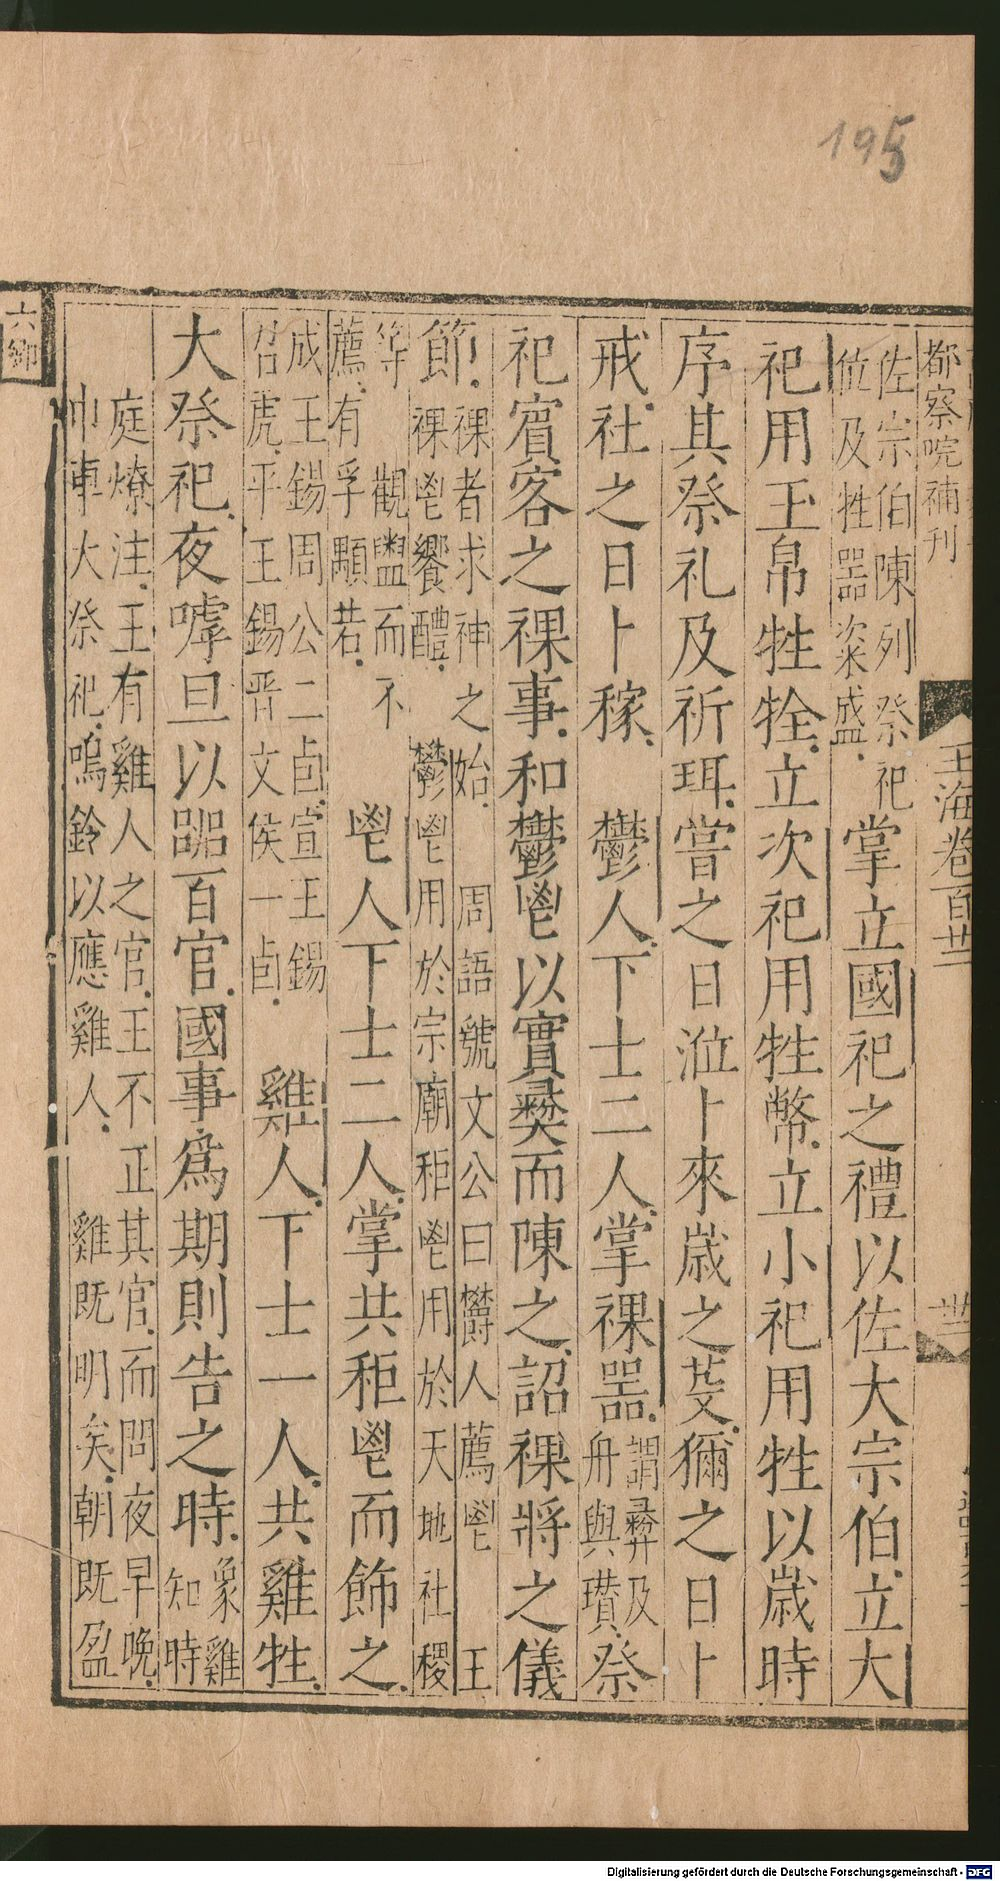 195
都察院補刊
玉海卷百廿二
佐宗伯陳列祭祀
位及牲器粢盛
掌立國祀之禮以佐大宗伯立大
祀用玉帛牲牷立次祀用牲幣立小祀用牲以歲時
序其祭礼及祈珥嘗之日涖卜來歲之芟獮之日卜
戒社之日卜稼 鬱人下士二人掌祼器
謂彝及
舟與瓚
祭
祀賔客之祼事和鬱鬯以實彝而陳之詔祼將之儀
節
祼者求神之始 周語虢文公曰欝人薦鬯 王
祼鬯饗醴 鬱鬯用於宗廟秬鬯用於天地社稷
等 觀盥而不
薦有孚顒若
鬯人下士二人掌共秬鬯而飾之
成王錫周公二卣宣王錫
召虎平王錫晋文侯一卣
雞人下士一人共雞牲
大祭祀夜嘑旦以嘂百官國事爲期則告之時
象雞
知時
庭燎注王有雞人之官王不正其官而問夜早晚
巾車大祭祀鳴鈴以應雞人 雞既明矣朝既盈
六卿
Digitalisierung gefördert durch die Deutsche Forschungsgemeinschaft - DFG